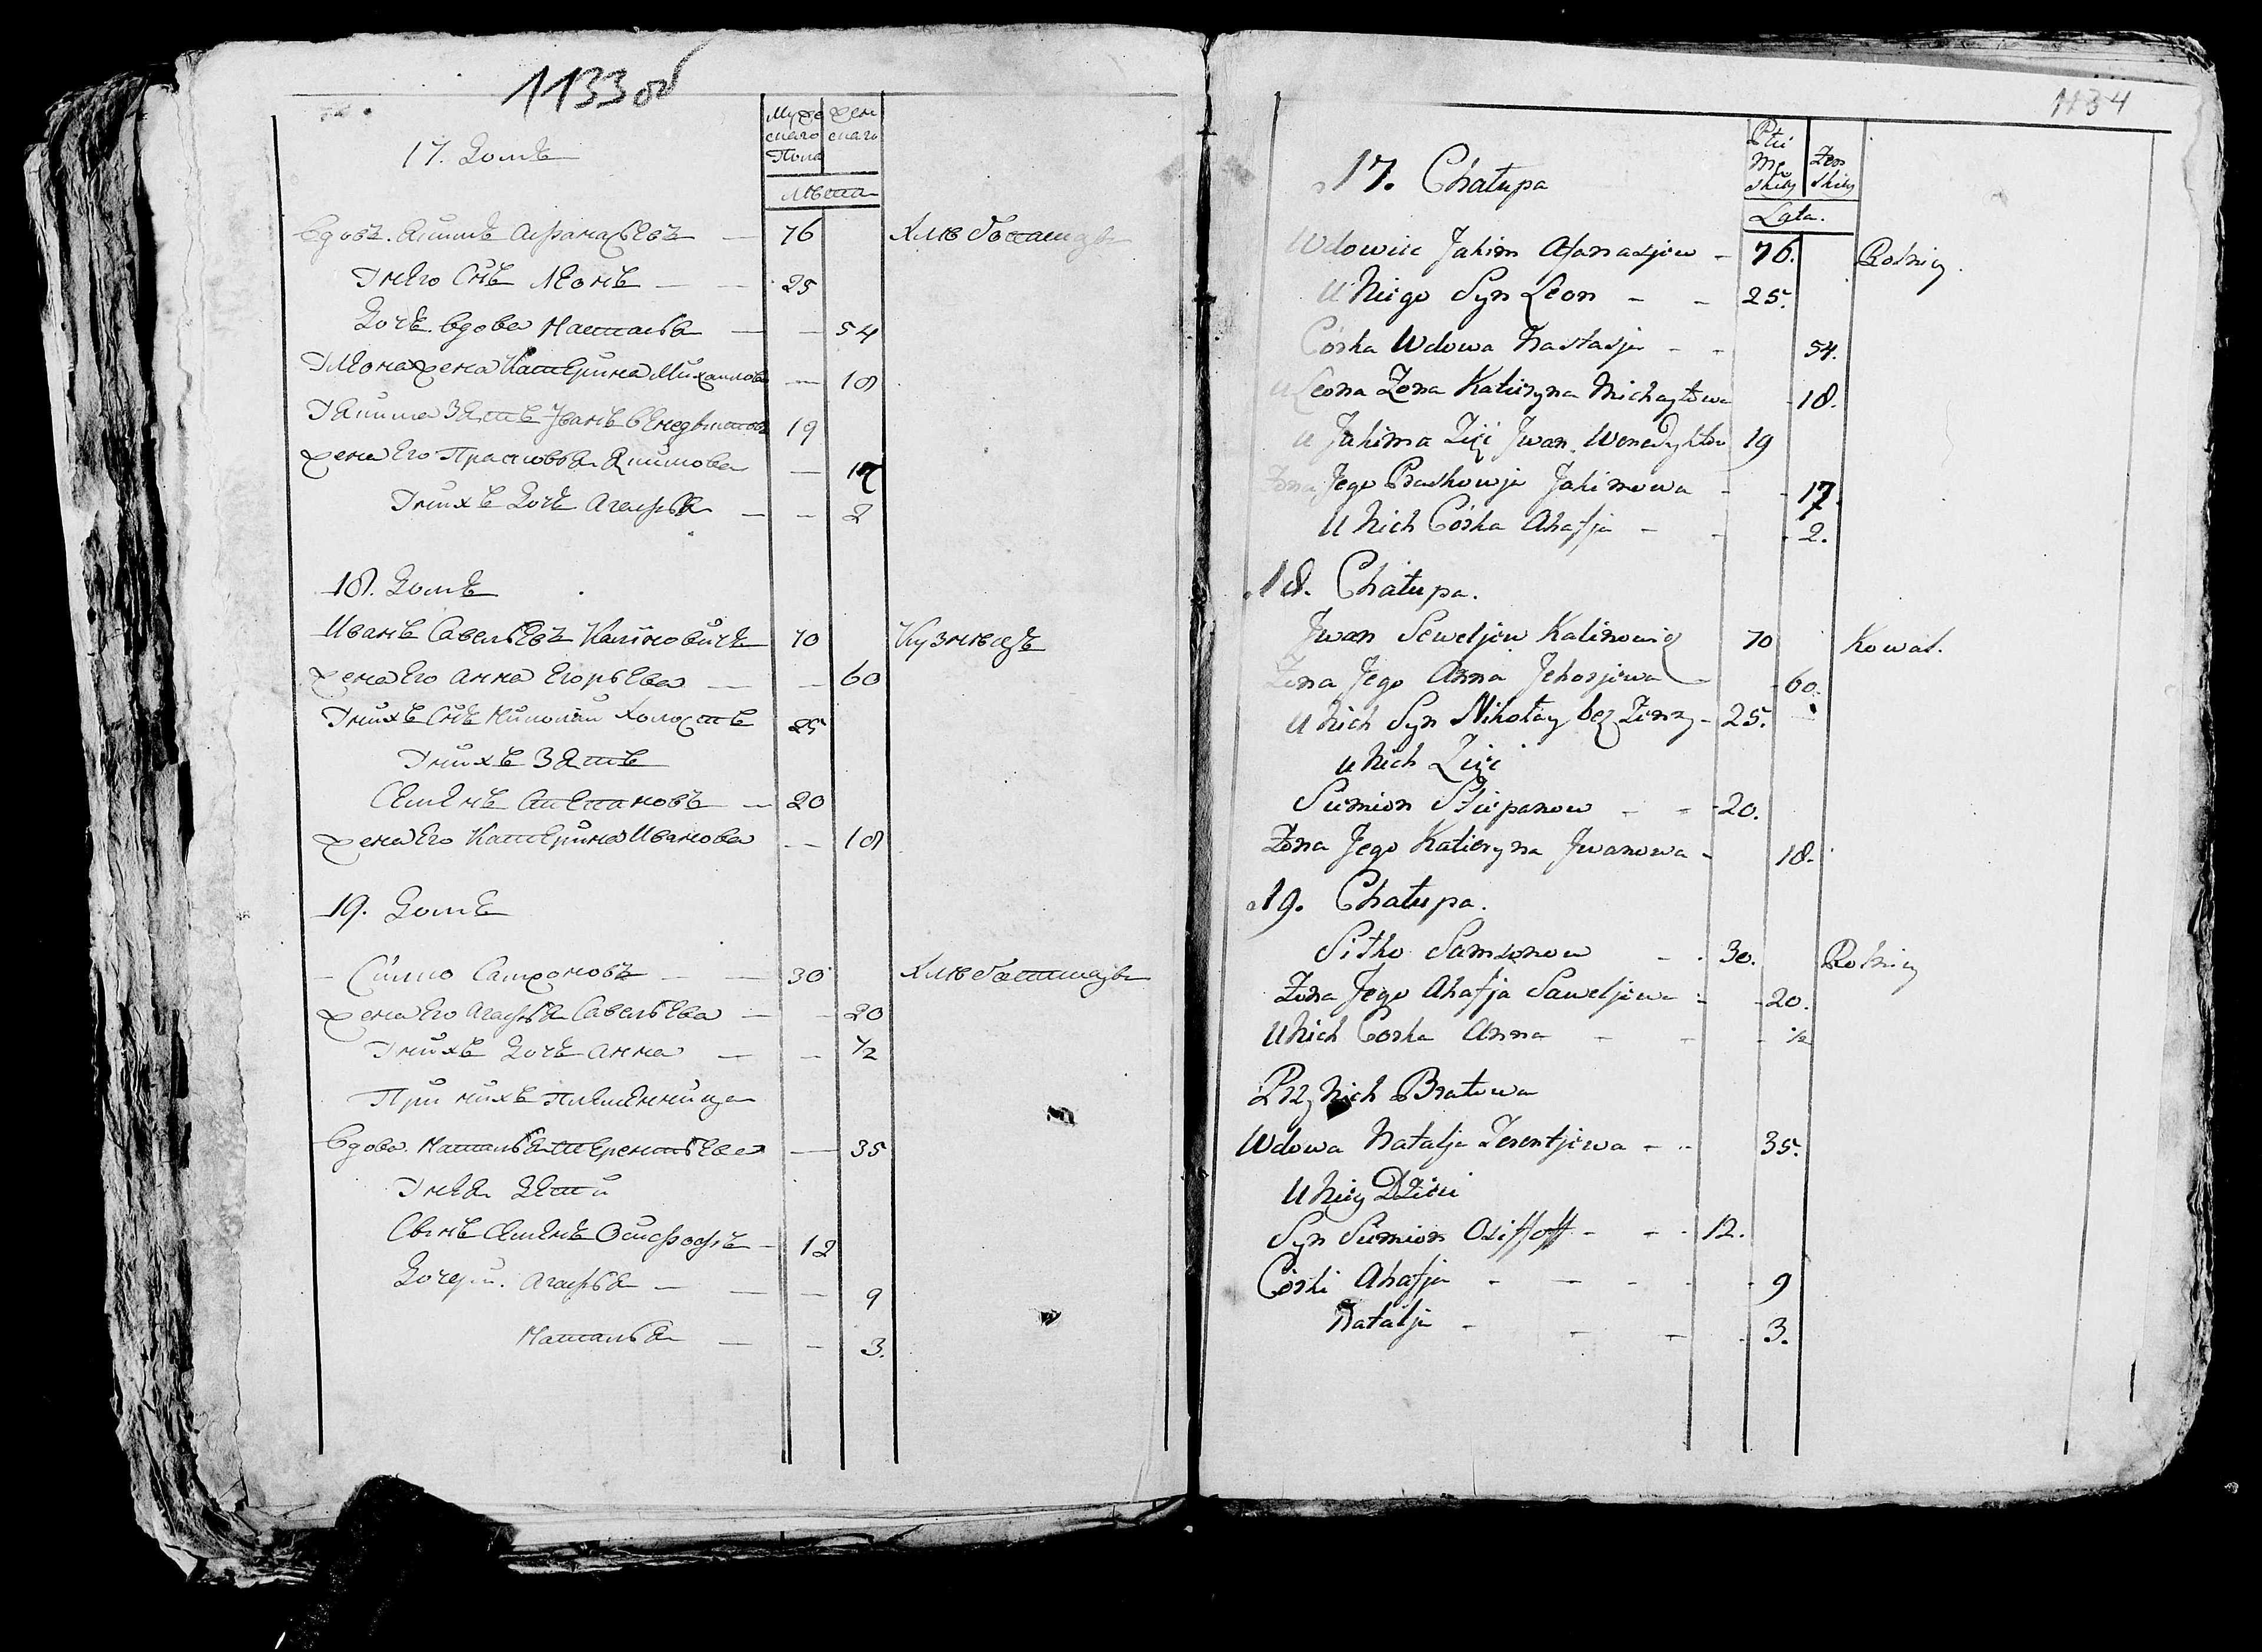 1133 об
Муже Жен
скаго скаго
Пола
Лѣта
17. Домъ
Вдовъ. Якимъ Афанасьевъ — 76 Хлѣбопашецъ
У него Снъ Леонъ — — 25
Дочь вдова Настасья — — 54
У Леона жена Катерина Михайлова — 18
У Якима Зять Иванъ Венедыктовъ 19
Жена Его Прасковья Якимова — 17
У нихъ Дочь Агафья — — 2
18. Домъ
Иванъ Савельевъ Калиновичъ 70 Кузнецъ
Жена Его Анна Егорьева — — 60
У нихъ Снъ Николай Холостъ 25
У нихъ Зять
Семенъ Степановъ — 20
Жена Его Катерина Иванова — — 18
19. Домъ
Самсоновъ — — 30 Хлѣбопашецъ
Жена Его Агафья Савельева — — 20
У нихъ Дочь Анна — — 1/2
При нихъ Племянница
Вдова Наталья Терентьева — 35
У нея Дети
Сынъ Семенъ Осифофъ — 12
Дочери. Агафья — — — 9
Наталья — — 3.
1134
Płci
Mę Żeń
skiey skiey
Lata.
17. Chałupa
Wdowiec Jakim Afanasjew — 76. Rolnicy.
U Niego Syn Leon — — 25.
Córka Wdowa Nastasja — — 54.
U Leona Żona Katieryna Michayłowa 18.
U Jakima Zięć Jwan Wenedyktow 19
Żona Jego Praskowja Jakimowa — — 17.
U Nich Córka Ahafja — — 2.
18. Chałupa.
Jwan Seweljew Kalinowicz 70 Kowal.
Żona Jego Anna Jehorjewa — 60.
U Nich Syn Nikołay bez Żony — 25.
U Nich Zięć
Siemion Stiepanow — — 20.
Żona Jego Katieryna Jwanowa — 18.
19. Chałupa.
Sitko Samsonow — 30. Rolnicy
Żona Jego Ahafja Saweljewa — 20.
U Nich Córka Anna — — 1/2
Przy Nich Bratowa
Wdowa Natalja Terentjewa — — 35.
U Niey Dzieci
Syn Siemion Osiffoff — — 12.
Córki Ahafja — — — 9
Natalja — — — 3.